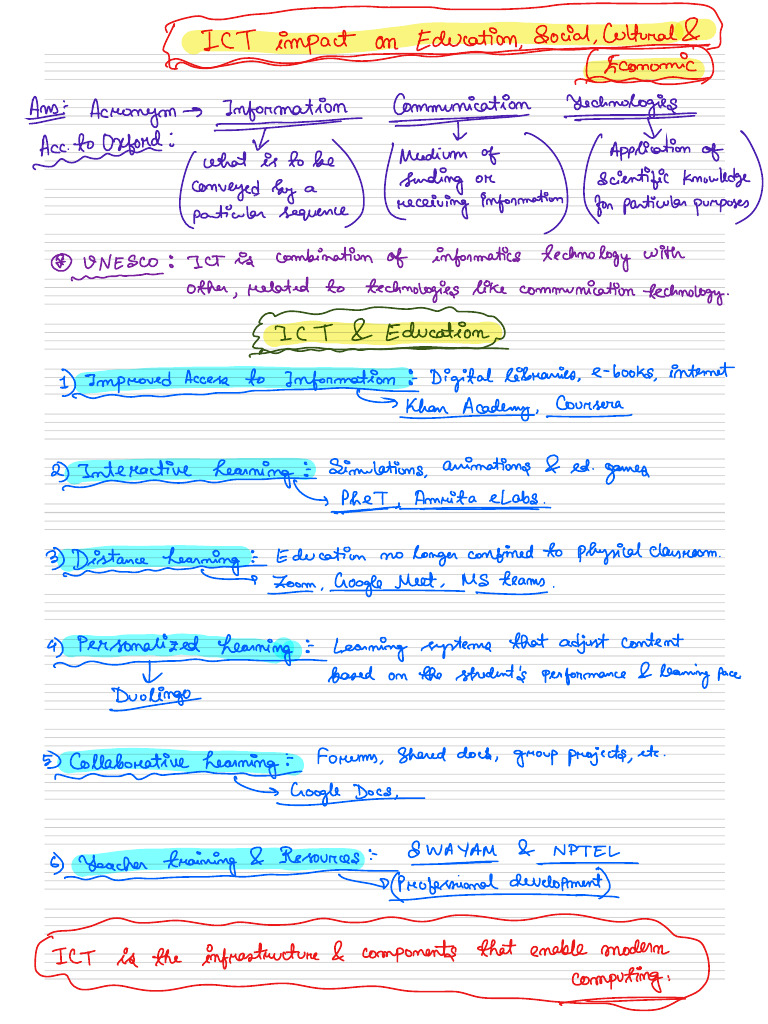 ICT impact on Education, Social, Cultural &
Economic
Ans: Acronym → Information Communication Technologies
Acc. to Oxford :
(what is to be conveyed by a particular sequence)
(Medium of sending or receiving information)
(Application of scientific knowledge for particular purposes)
* UNESCO : ICT is combination of informatics technology with
other, related to technologies like communication technology.
ICT & Education
1) Improved Access to Information :- Digital libraries, e-books, internet
→ Khan Academy, Coursera
2) Interactive Learning :- Simulations, animations & ed. games
→ PheT, Amrita eLabs.
3) Distance Learning :- Education no longer confined to physical classroom.
→ Zoom, Google Meet, MS teams.
4) Personalized Learning :- Learning systems that adjust content
based on the student's performance & learning pace
Duolingo
5) Collaborative Learning :- Forums, Shared docs, group projects, etc.
→ Google Docs,
6) Teacher training & Resources :- SWAYAM & NPTEL
→ (Professional development)
ICT is the infrastructure & components that enable modern
computing.